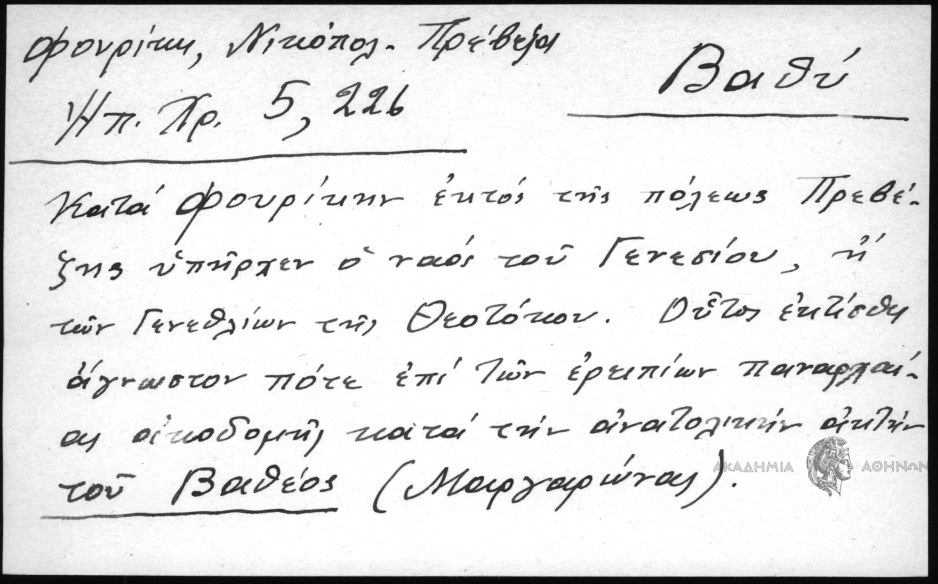 Φουρίκη, Νικόπολ. Πρέβεζα
Βαθύ
Ἠπ. Χρ. 5, 226
Κατά Φουρίκην ἐκτός τῆς πόλεως Πρεβέ-
ζης ὑπῆρχεν ὁ ναός τοῦ Γενεσίου, ἤ
τῶν Γενεθλίων τῆς Θεοτόκου. Οὗτος ἐκτίσθη
ἄγνωστον πότε ἐπί τῶν ἐρειπίων παναρχαί-
ας οἰκοδομῆς κατά τήν ἀνατολικήν ἀκτήν
τοῦ Βαθέος (Μαργαρώνας).
ΑΚΑΔΗΜΙΑ ΑΘΗΝΩΝ